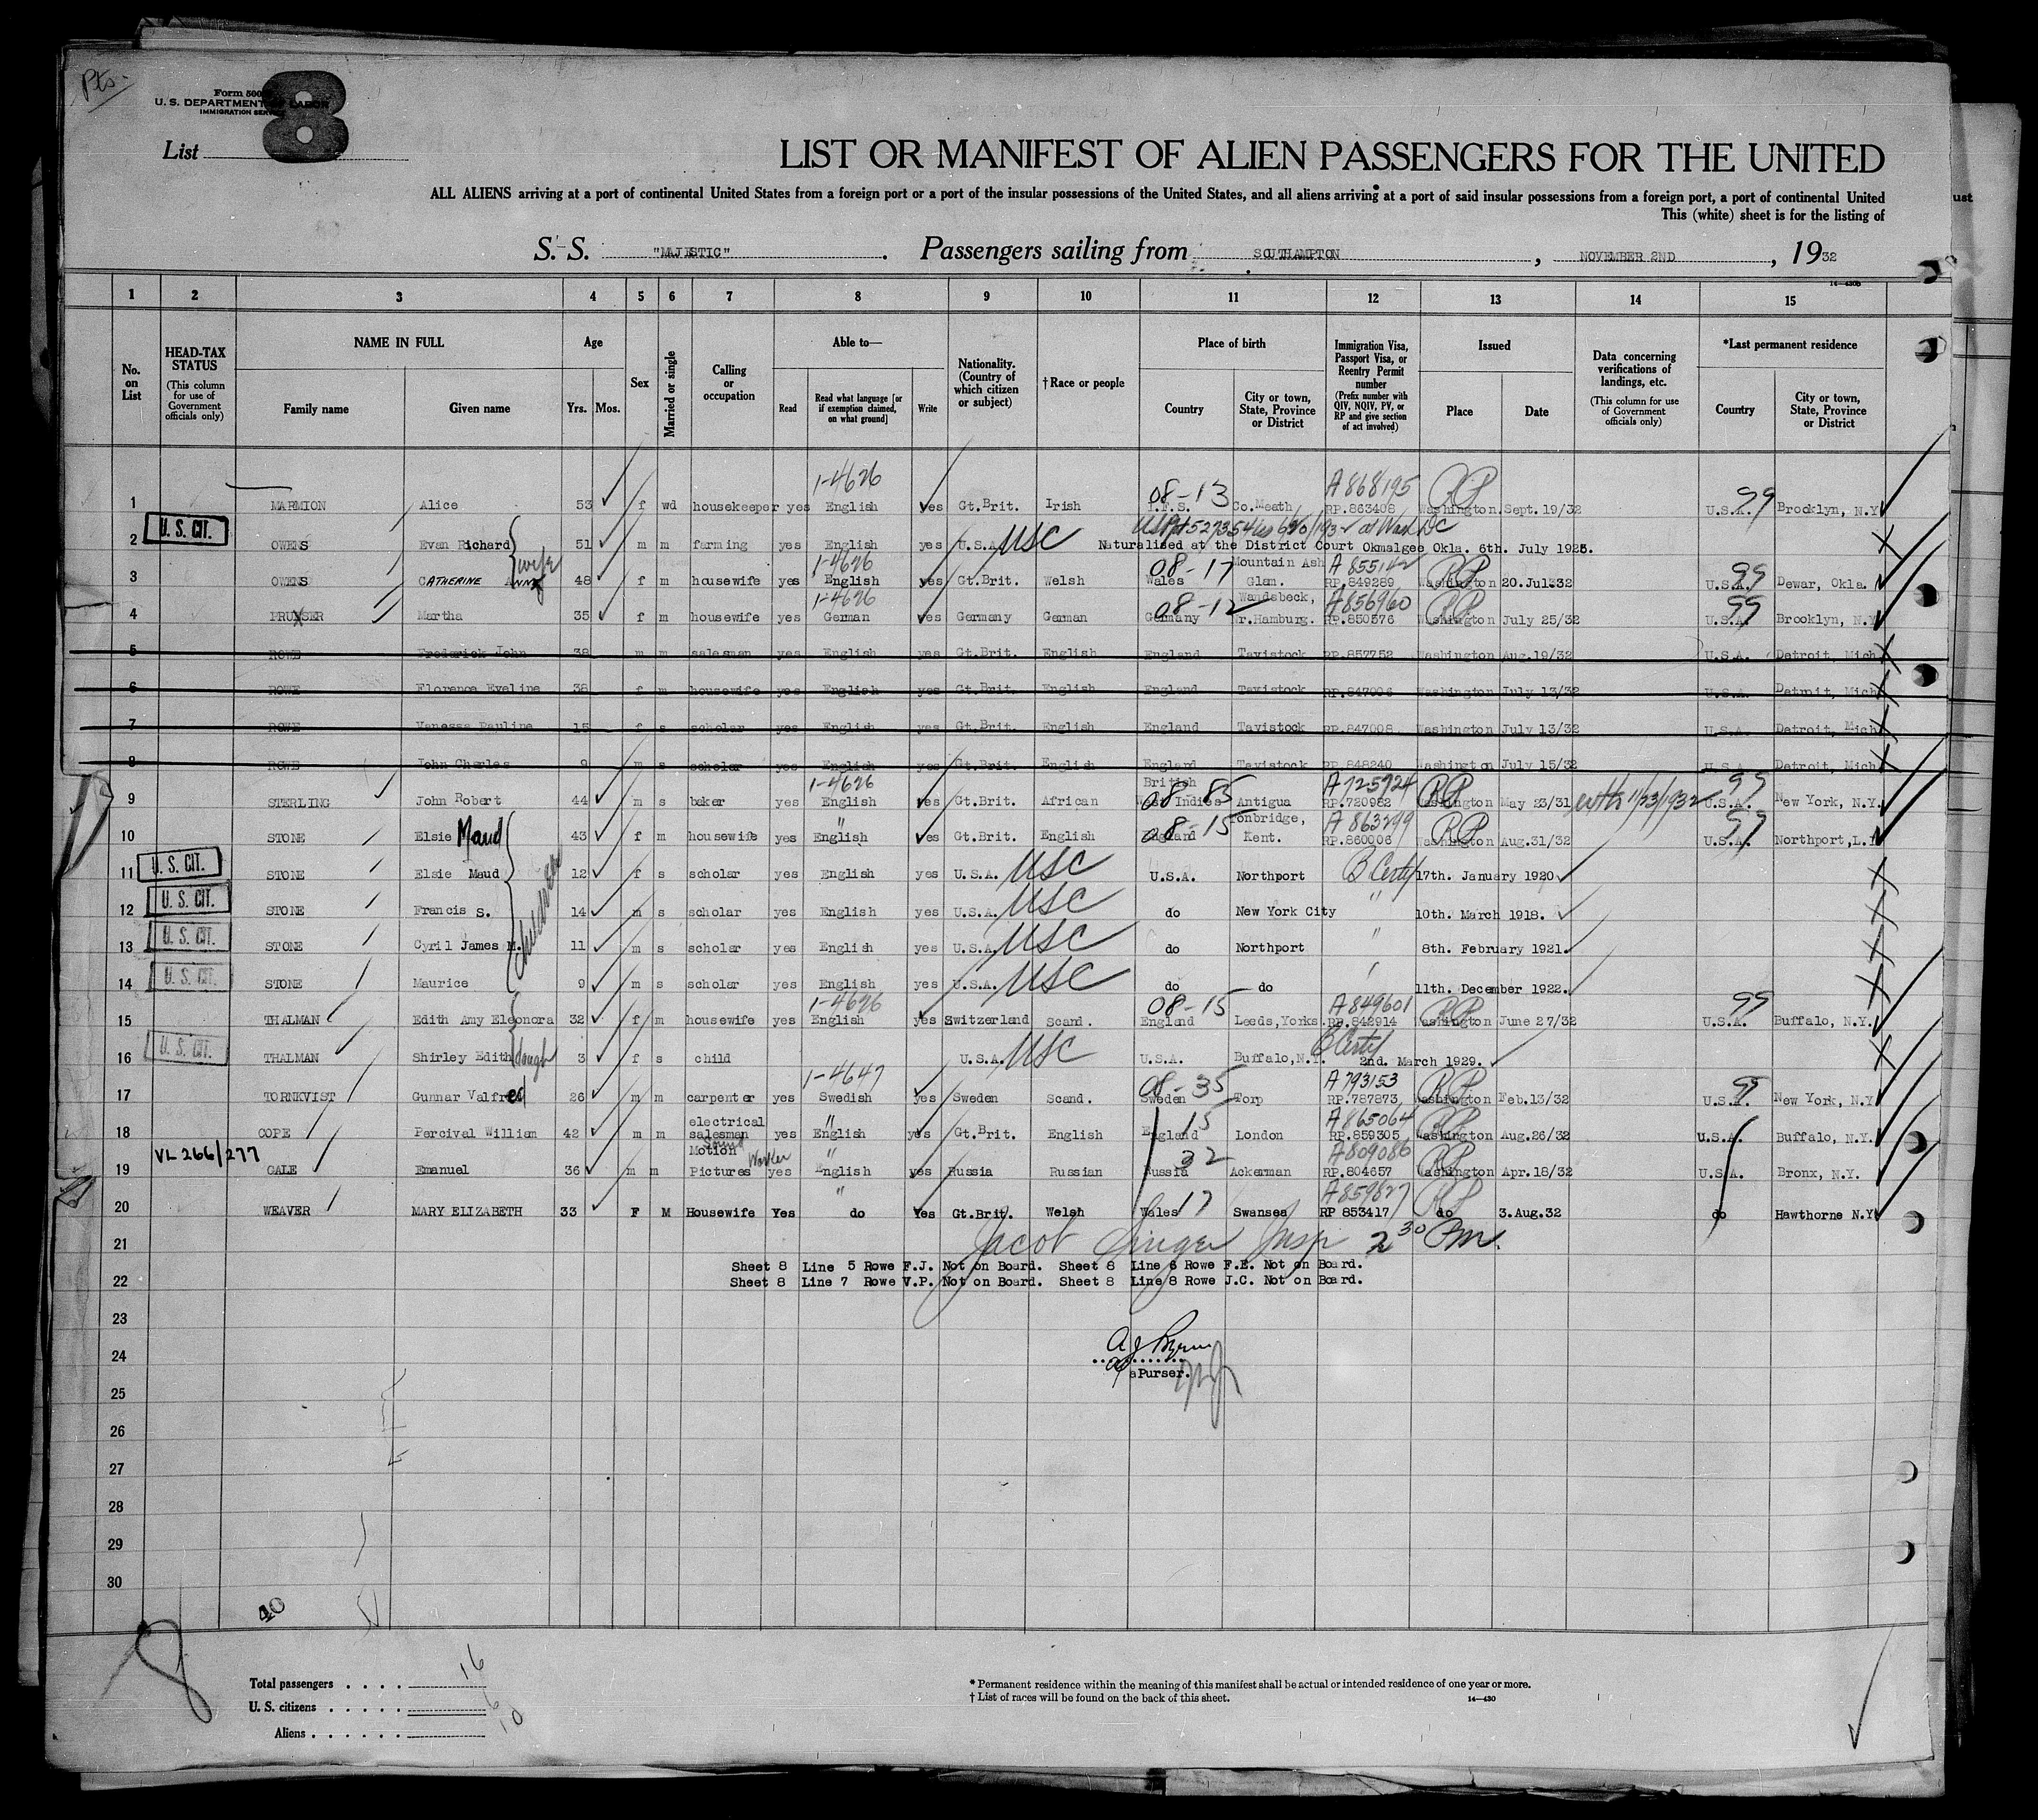 Pts-
Form 500
U. S. DEPARTMENT OF LABOR
IMMIGRATION SERVICE
8
List
LIST OR MANIFEST OF ALIEN PASSENGERS FOR THE UNITED
ALL ALIENS arriving at a port of continental United States from a foreign port or a port of the insular possessions of the United States, and all aliens arriving at a port of said insular possessions from a foreign port, a port of continental United
This (white) sheet is for the listing of
S. S. "MAJESTIC". Passengers sailing from SOUTHAMPTON, NOVEMBER 2ND, 1932
14-430B
1 2 3 4 5 6 7 8 9 10 11 12 13 14 15
No. on List
HEAD-TAX STATUS (This column for use of Government officials only)
NAME IN FULL
Family name Given name
Age
Yrs. Mos.
Sex
Married or single
Calling or occupation
Able to—
Read
Read what language [or if exemption claimed, on what ground]
Write
Nationality. (Country of which citizen or subject)
†Race or people
Place of birth
Country
City or town, State, Province or District
Immigration Visa, Passport Visa, or Reentry Permit number (Prefix number with QIV, NQIV, PV, or RP and give section of act involved)
Issued
Place Date
Data concerning verifications of landings, etc. (This column for use of Government officials only)
*Last permanent residence
Country
City or town, State, Province or District
1-4626 08-13 A 868195 RP 99
1 MARMION Alice 53 f wd housekeeper yes English yes Gt.Brit. Irish I.F.S. Co.Meath RP.863408 Washington Sept. 19/32 U.S.A. Brooklyn, N.Y.
U. S. CIT. USC at Wash DC
2 OWENS Evan Richard 51 m m farming yes English yes U.S.A. Naturalised at the District Court Okmalgee Okla. 6th. July 1925.
wife 1-4626 08-17 Mountain Ash A 855142 RP 99
3 OWENS CATHERINE ANN 48 f m housewife yes English yes Gt.Brit. Welsh Wales Glam. RP.849289 Washington 20.Jul.32 U.S.A. Dewar, Okla.
1-4626 08-12 Wandsbeck, A 856960 RP 99
4 PRUSSER Martha 35 f m housewife yes German yes Germany German Germany Nr.Hamburg. RP.850576 Washington July 25/32 U.S.A. Brooklyn, N.Y.
5 ROWE Frederick John 38 m m salesman yes English yes Gt.Brit. English England Tavistock RP.857752 Washington Aug.19/32 U.S.A. Detroit, Mich
6 ROWE Florence Eveline 38 f m housewife yes English yes Gt.Brit. English England Tavistock RP.847006 Washington July 13/32 U.S.A. Detroit, Mich
7 ROWE Vanessa Pauline 15 f s scholar yes English yes Gt.Brit. English England Tavistock RP.847008 Washington July 13/32 U.S.A. Detroit, Mich
8 ROWE John Charles 9 m s scholar yes English yes Gt.Brit. English England Tavistock RP.848240 Washington July 15/32 U.S.A. Detroit, Mich
1-4626 British 08-85 A 725924 RP 99
9 STERLING John Robert 44 m s baker yes English yes Gt.Brit. African West Indies Antigua RP.720982 Washington May 23/31 11/23/1932 U.S.A. New York, N.Y.
" 08-15 Tonbridge, A 863299 RP 99
10 STONE Elsie Maud 43 f m housewife yes English yes Gt.Brit. English England Kent. RP.860006 Washington Aug.31/32 U.S.A. Northport,L.I
children
U. S. CIT.
11 STONE Elsie Maud 12 f s scholar yes English yes U.S.A. USC U.S.A. Northport B Certf 17th. January 1920.
U. S. CIT.
12 STONE Francis S. 14 m s scholar yes English yes U.S.A. USC do New York City " 10th. March 1918.
U. S. CIT.
13 STONE Cyril James M. 11 m s scholar yes English yes U.S.A. USC do Northport " 8th. February 1921.
U. S. CIT.
14 STONE Maurice 9 m s scholar yes English yes U.S.A. USC do do 11th. December 1922.
1-4626 08-15 A 849601 RP 99
15 THALMAN Edith Amy Eleonora 32 f m housewife yes English yes Switzerland Scand. England Leeds,Yorks. RP.842914 Washington June 27/32 U.S.A. Buffalo, N.Y.
U. S. CIT.
16 THALMAN Shirley Edith daugh 3 f s child U.S.A. USC U.S.A. Buffalo,N.Y. B Certf 2nd. March 1929.
1-4647 08-35 A 793153 RP 99
17 TORNKVIST Gunnar Valfred 26 m m carpenter yes Swedish yes Sweden Scand. Sweden Torp RP.787873 Washington Feb.13/32 U.S.A. New York, N.Y
" 15 A 865064 RP
18 COPE Percival William 42 m m electrical salesman yes English yes Gt.Brit. English England London RP.859305 Washington Aug.26/32 U.S.A. Buffalo, N.Y.
VL 266/277 Sound Worker " 32 A 809086 RP
19 CALE Emanuel 36 m m Motion Pictures yes English yes Russia Russian Russia Ackerman RP.804657 Washington Apr.18/32 U.S.A. Bronx, N.Y.
" 17 A 859827 RP
20 WEAVER MARY ELIZABETH 33 F M Housewife Yes do Yes Gt.Brit. Welsh Wales Swansea RP 853417 do 3.Aug.32 do Hawthorne N.Y
21 Jacob Singer Insp 2 30 Pm.
Sheet 8 Line 5 Rowe F.J. Not on Board. Sheet 8 Line 6 Rowe F.E. Not on Board.
22 Sheet 8 Line 7 Rowe V.P. Not on Board. Sheet 8 Line 8 Rowe J.C. Not on Board.
23
24 A J Byrne
Purser.
25
26
27
28
29
30
40
8
Total passengers . . . . 16
U. S. citizens . . . . . 6
Aliens . . . . . . 10
* Permanent residence within the meaning of this manifest shall be actual or intended residence of one year or more.
† List of races will be found on the back of this sheet.
14-430